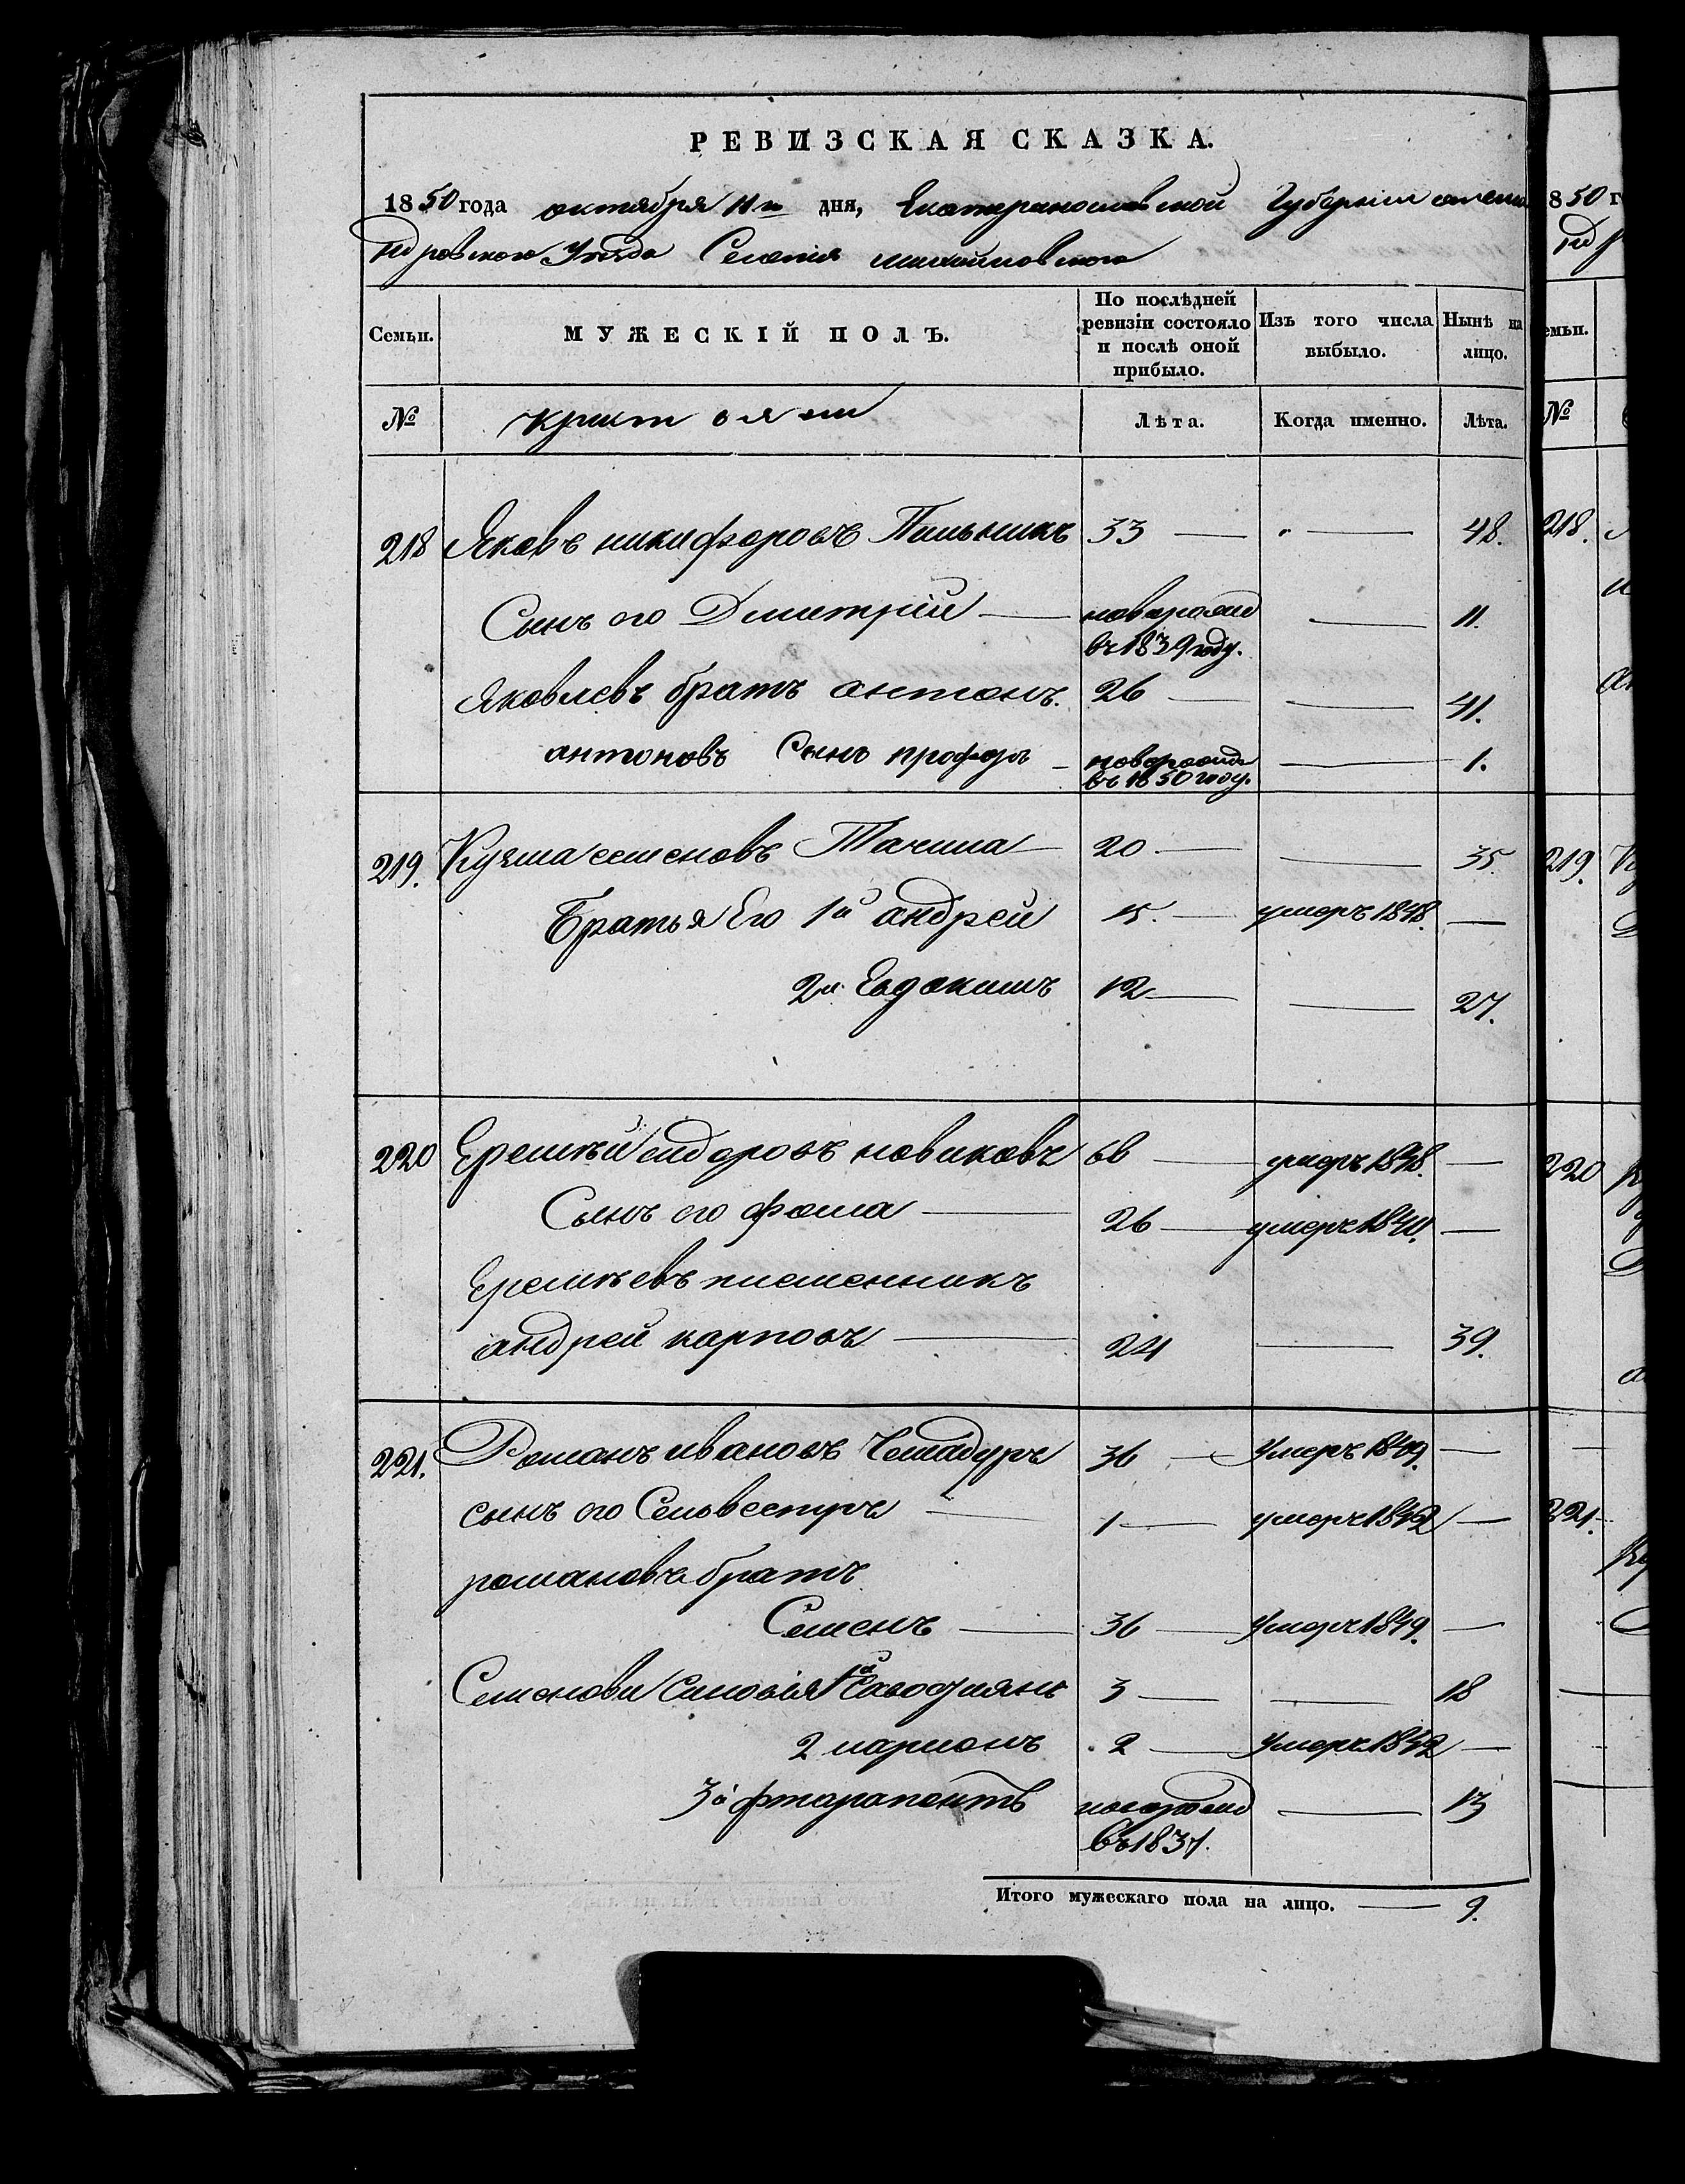 РЕВИЗСКАЯ СКАЗКА.
1850 года октября 11го дня, Екатеринославской Губернии
Уезда Селения михайловского
Семьи. МУЖЕСКІЙ ПОЛЪ. По послѣдней ревизіи состояло и послѣ оной прибыло. Изъ того числа выбыло. Нынѣ на лицо.
№ Лѣта. Когда именно. Лѣта.
218 Яковъ никифоровъ Пильникъ 33 — 48.
Сынъ его Дмитрій — новорожд — 11.
въ 1839 году.
Яковлевъ братъ антонъ. 26 — 41.
антоновъ Сынъ — новорожд — 1.
въ 1850 году.
219. Кузма семеновъ 20 — 35.
Братья Его 1й андрей 15. — умеръ 1848. —
2й Евдокимъ 12 — 27.
220 Еремѣй сидоровъ новиковъ — умеръ 1848. —
Сынъ его фома — 26 — умеръ —
Еремѣевъ племенникъ
андрей карповъ — 24 — 39.
221. Романъ ивановъ 36 — Умеръ 1849. —
сынъ его Селвестръ — 1 — умеръ 1842 —
романовъ братъ
Семенъ — 36 — Умеръ 1849. —
Семенови Синовія 1й 3 — 18
2 ларионъ 2 — Умеръ 1842 —
3й новорожд — 13
въ 1837.
Итого мужескаго пола на лицо. — 9.
850 г
емьи.
№
218.
219.
220
221.